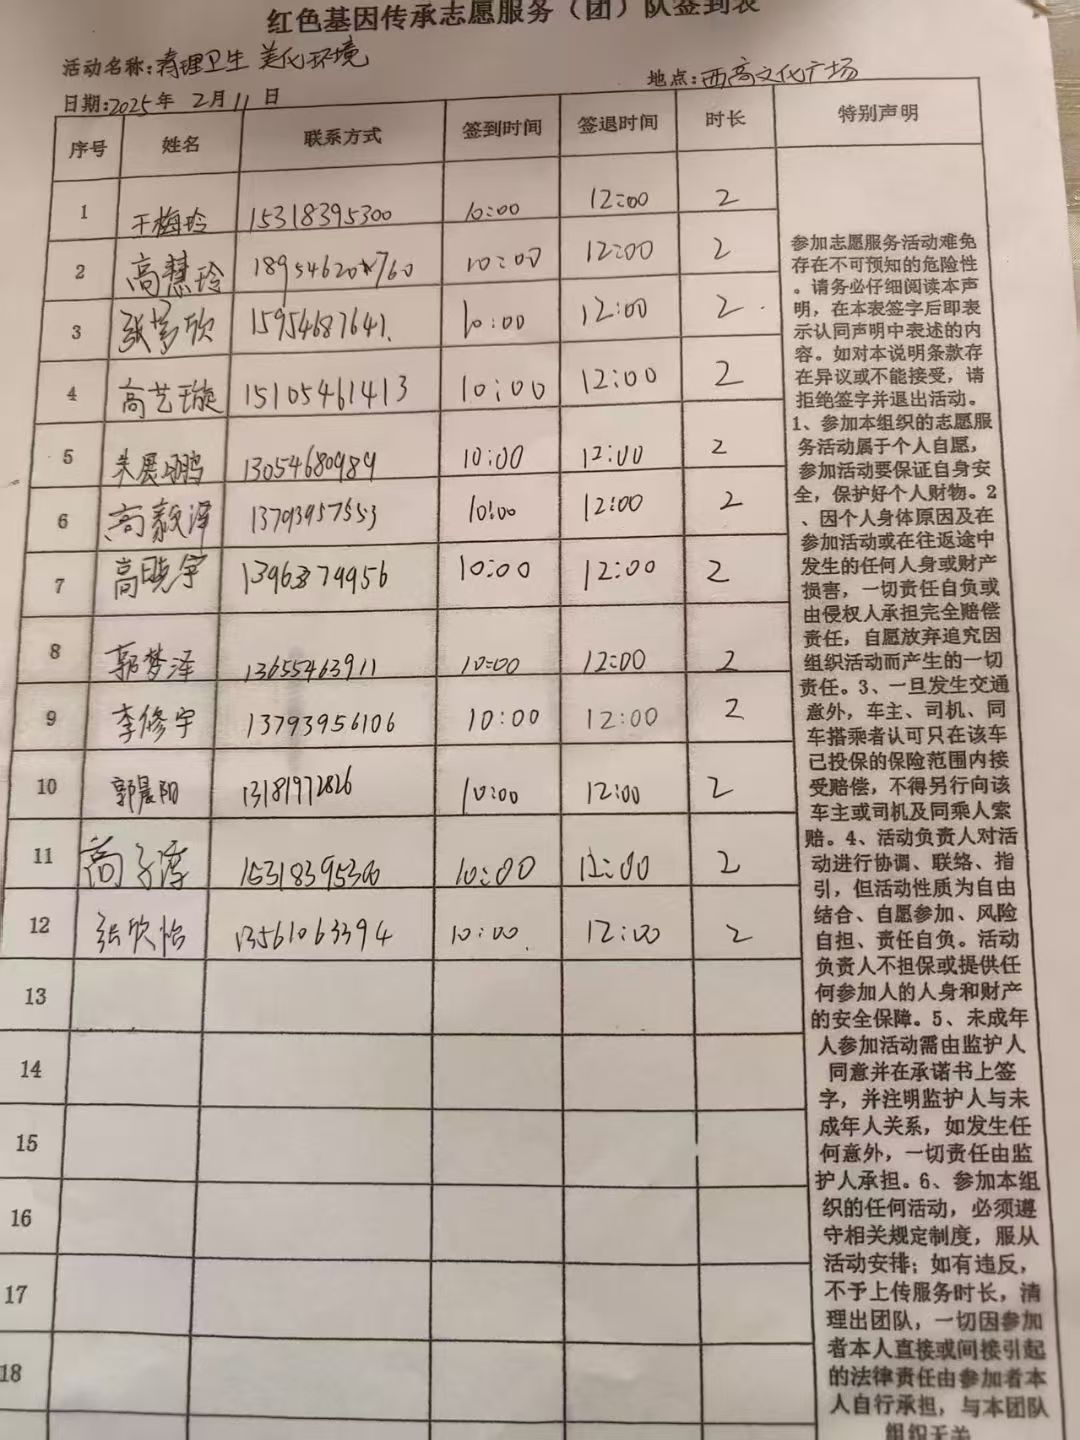 红色基因传承志愿服务（团）队签到表
活动名称：清理卫生 美化环境
地点：西高文化广场
日期：2025年 2月11日
序号 姓名 联系方式 签到时间 签退时间 时长 特别声明
1 王梅玲 15318395300 10:00 12:00 2
2 高慧玲 18954620760 10:00 12:00 2
3 张梦欣 15954687641 10:00 12:00 2
4 高艺璇 15105461413 10:00 12:00 2
5 朱展鹏 13054680989 10:00 12:00 2
6 高毅泽 13793957553 10:00 12:00 2
7 高晓宇 10:00 12:00 2
8 郭梦泽 13655463911 10:00 12:00 2
9 李修宇 13793956106 10:00 12:00 2
10 郭晨阳 13181972826 10:00 12:00 2
11 高子淳 15318395300 10:00 12:00 2
12 张欣怡 13561063394 10:00 12:00 2
13
14
15
16
17
18
参加志愿服务活动难免
存在不可预知的危险性
。请务必仔细阅读本声
明，在本表签字后即表
示认同声明中表述的内
容。如对本说明条款存
在异议或不能接受，请
拒绝签字并退出活动。
1、参加本组织的志愿服
务活动属于个人自愿，
参加活动要保证自身安
全，保护好个人财物。2
、因个人身体原因及在
参加活动或在往返途中
发生的任何人身或财产
损害，一切责任自负或
由侵权人承担完全赔偿
责任，自愿放弃追究因
组织活动而产生的一切
责任。3、一旦发生交通
意外，车主、司机、同
车搭乘者认可只在该车
已投保的保险范围内接
受赔偿，不得另行向该
车主或司机及同乘人索
赔。4、活动负责人对活
动进行协调、联络、指
引，但活动性质为自由
结合、自愿参加、风险
自担、责任自负。活动
负责人不担保或提供任
何参加人的人身和财产
的安全保障。5、未成年
人参加活动需由监护人
同意并在承诺书上签
字，并注明监护人与未
成年人关系，如发生任
何意外，一切责任由监
护人承担。6、参加本组
织的任何活动，必须遵
守相关规定制度，服从
活动安排；如有违反，
不予上传服务时长，清
理出团队，一切因参加
者本人直接或间接引起
的法律责任由参加者本
人自行承担，与本团队
组织无关